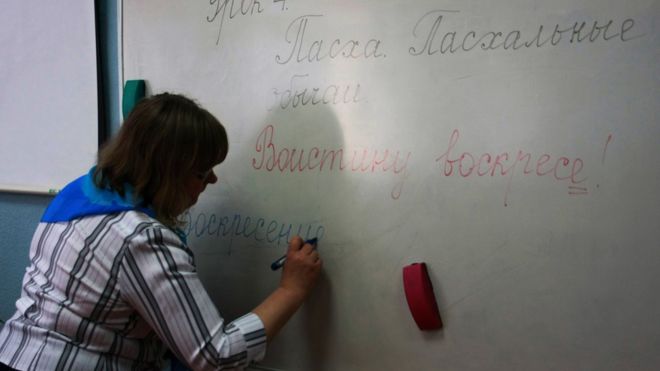 Урок 4.
Пасха. Пасхальные
обычаи.
Воистину воскресе!
Воскресение